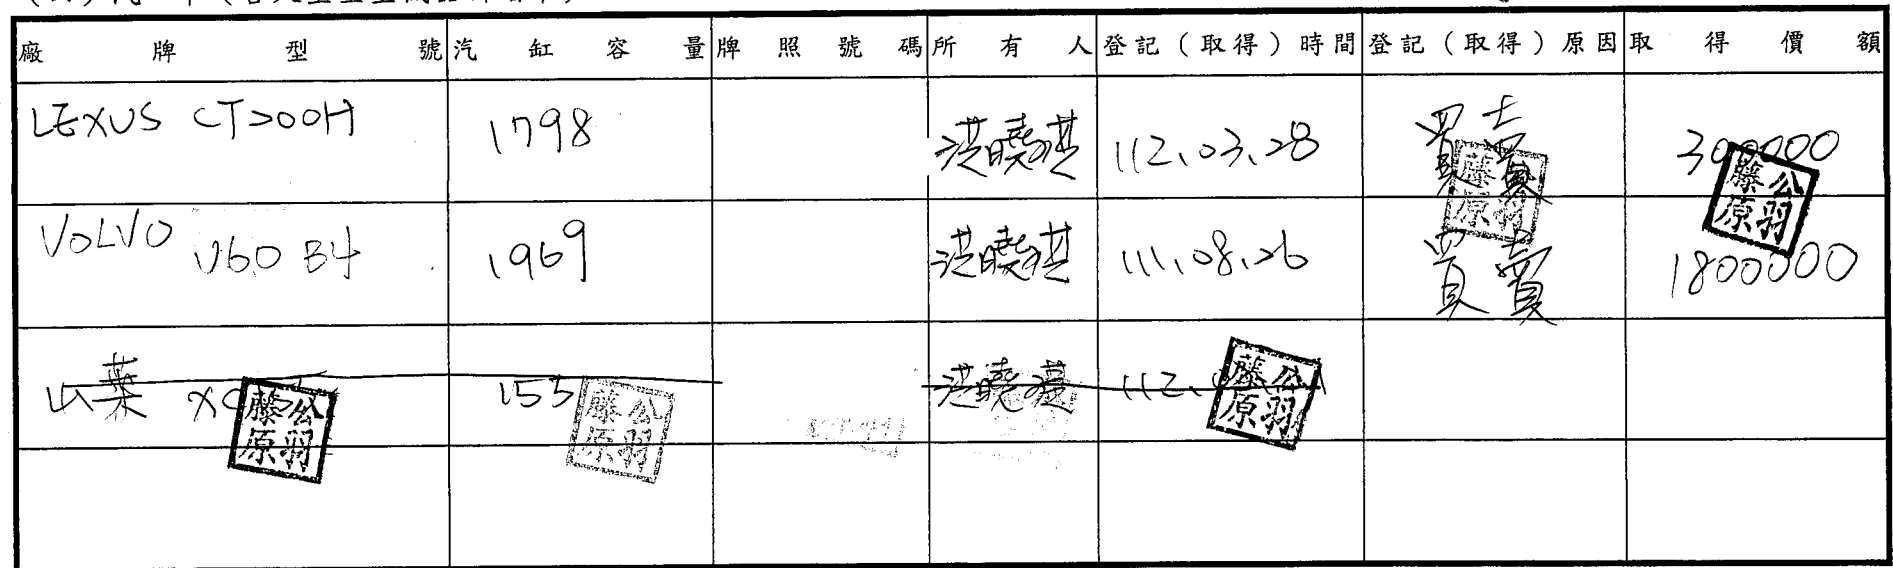 廠牌型號 汽缸容量 牌照號碼 所有人 登記（取得）時間 登記（取得）原因 取得價額
LEXUS CT200H 1798 洪曉祺 112.03.28 買賣 300000
藤公原羽
藤公原羽
VOLVO V60 B4 1969 洪曉祺 111.08.26 買賣 1800000
山葉 155 洪曉 112.
藤公原羽
藤公原羽
藤公原羽